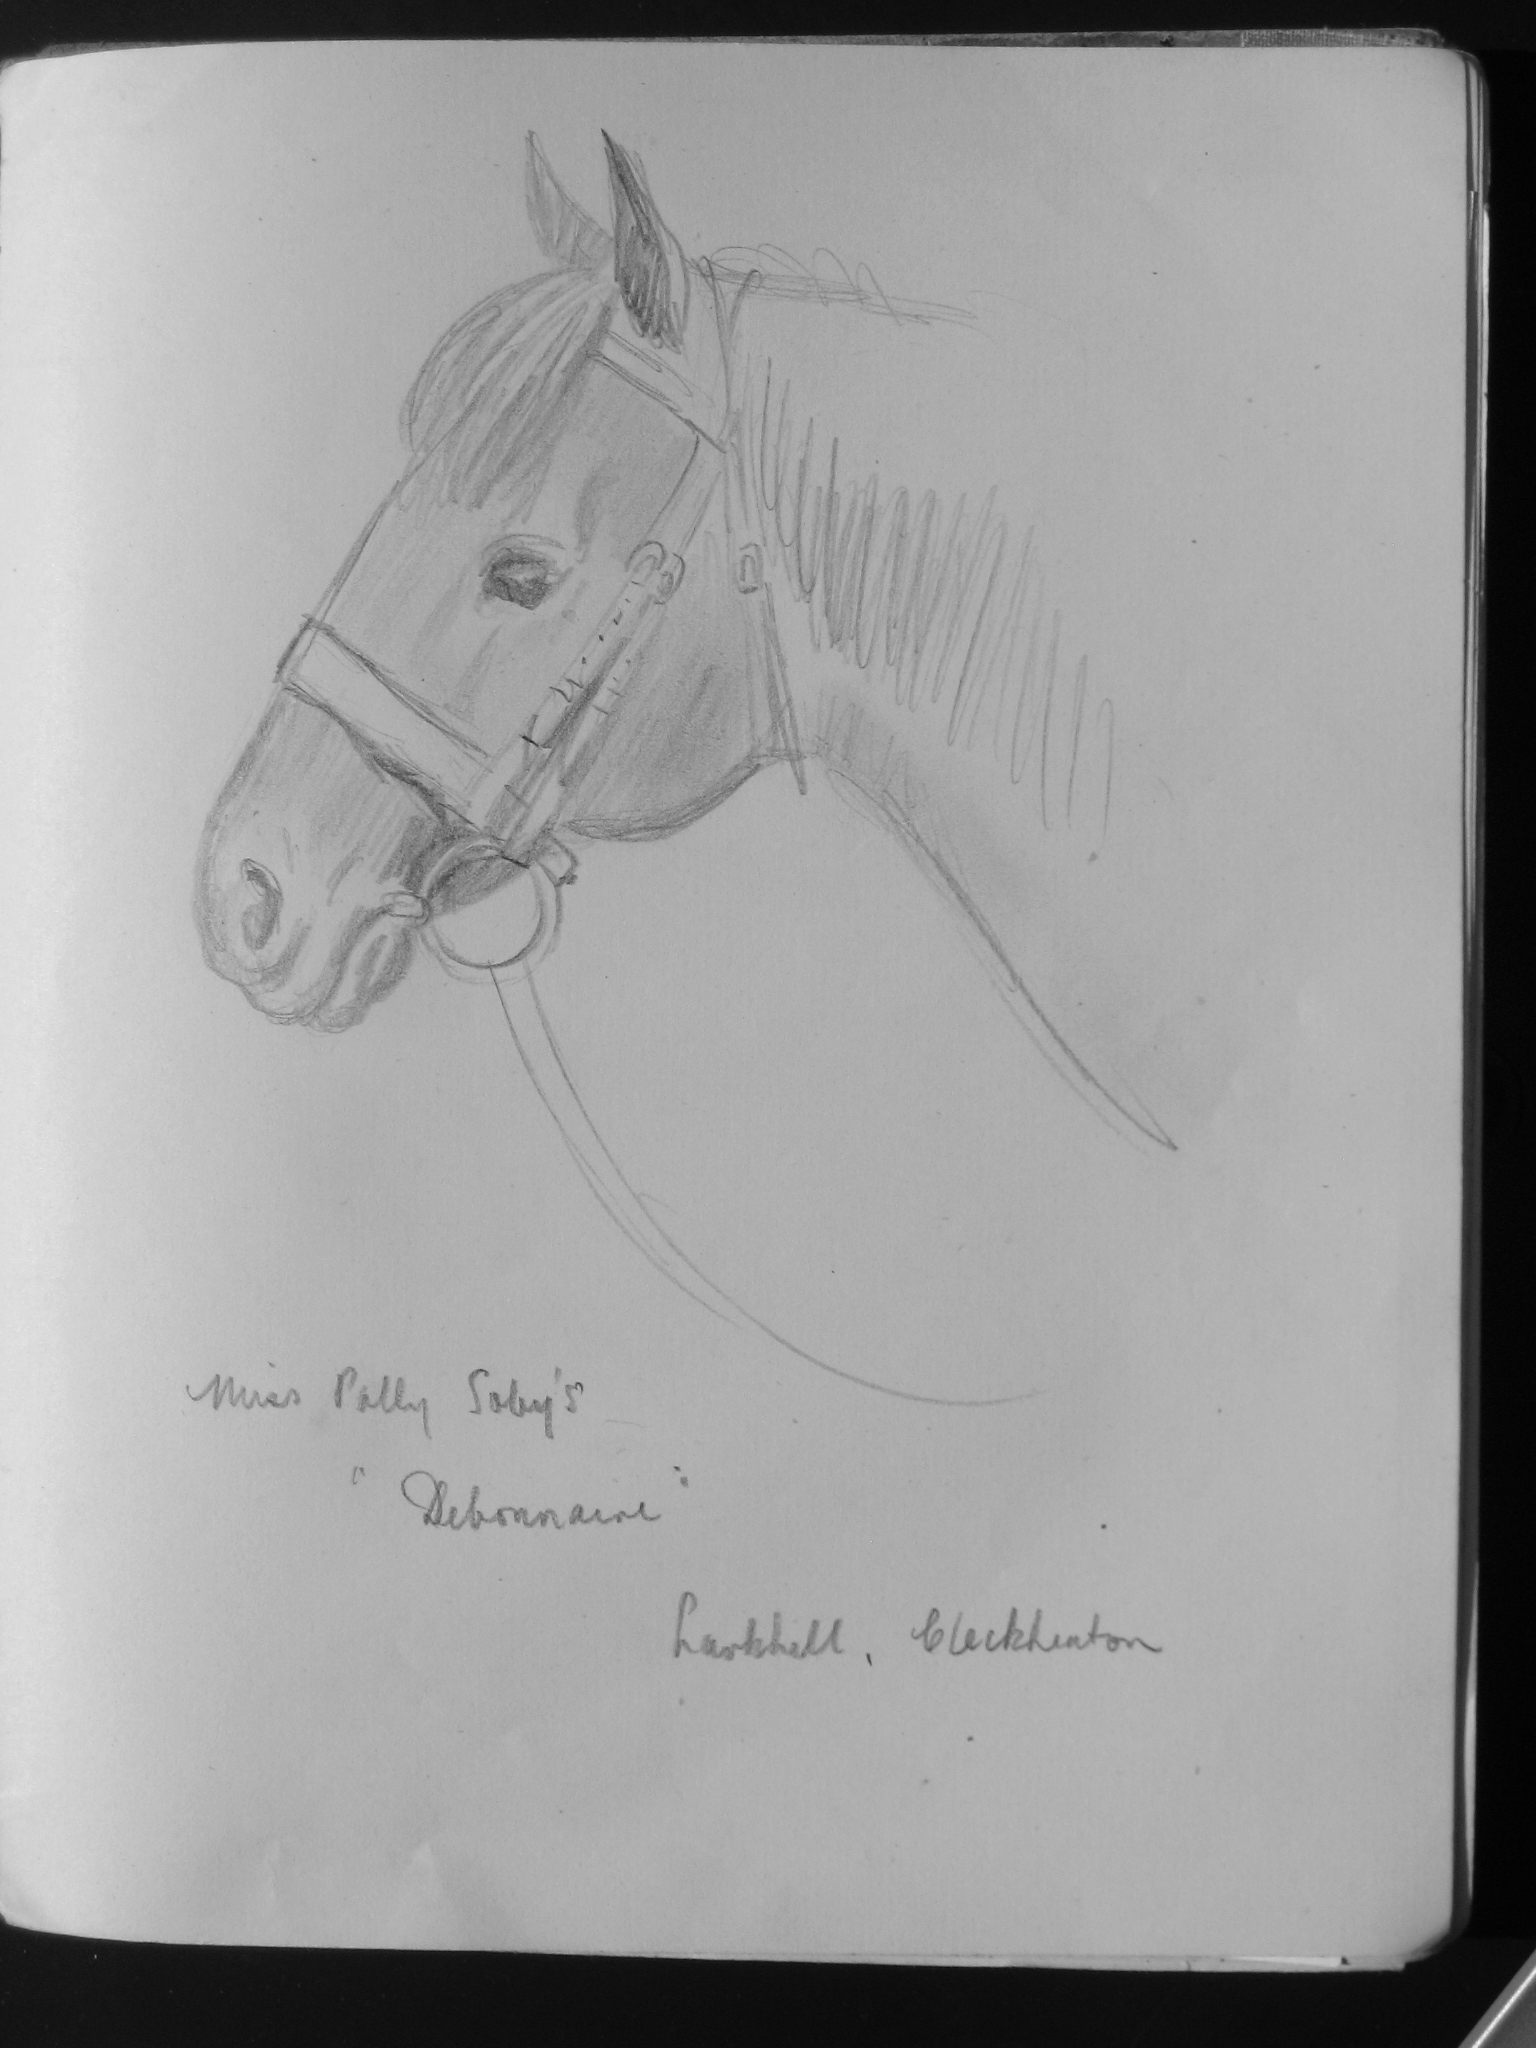 Miss Polly Soby's
"Debonnaire"
Larkhill, Cleckheaton